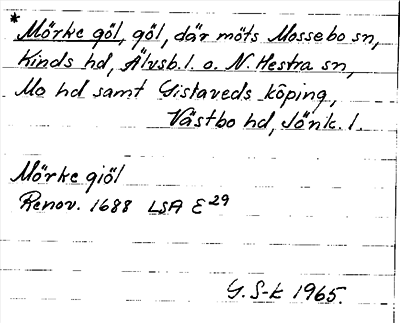 *
Mörke göl, göl, där möts Mossebo sn,
Kinds hd, Älvsb. l. o. N. Hestra sn,
Mo hd samt Gislaveds köping,
Västbo hd, Jönk. l.
Mörke giöl
Renov. 1688 LSA E29
G. S-k 1965.